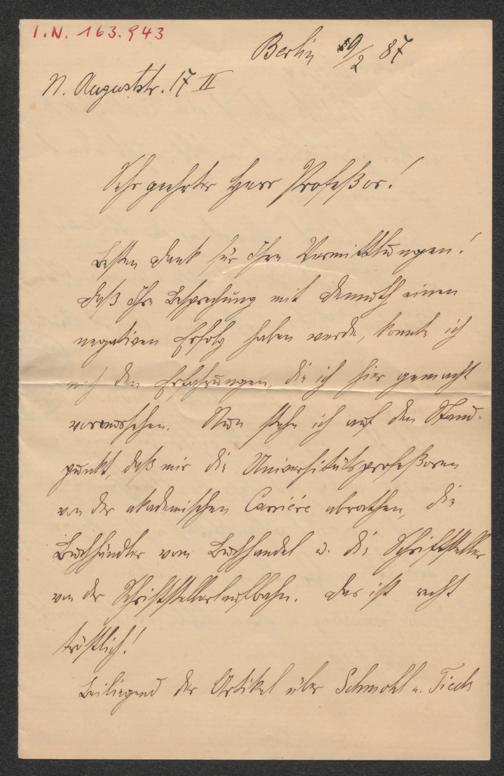 I.N. 163.943
Berlin 9/2 87
N. Auguststr. 17 II
Sehr geehrter Herr Profeßor!
Besten Dank für Ihre Vermittlungen!
Daß Ihre Besprechung mit Demuth einen
negativen Erfolg haben werde, konnte ich
nach den Erfahrungen, die ich hier gemacht
voraussehen. Nun stehe ich auf dem Stand-
punkt, daß mir die Universitätsprofeßoren
von der akademischen Carriére abrathen, die
Buchhändler vom Buchhandel u. die Schriftsteller
von der Schriftstellerlaufbahn. Das ist recht
tröstlich!
Beiliegend der Artikel über Schmohl u.